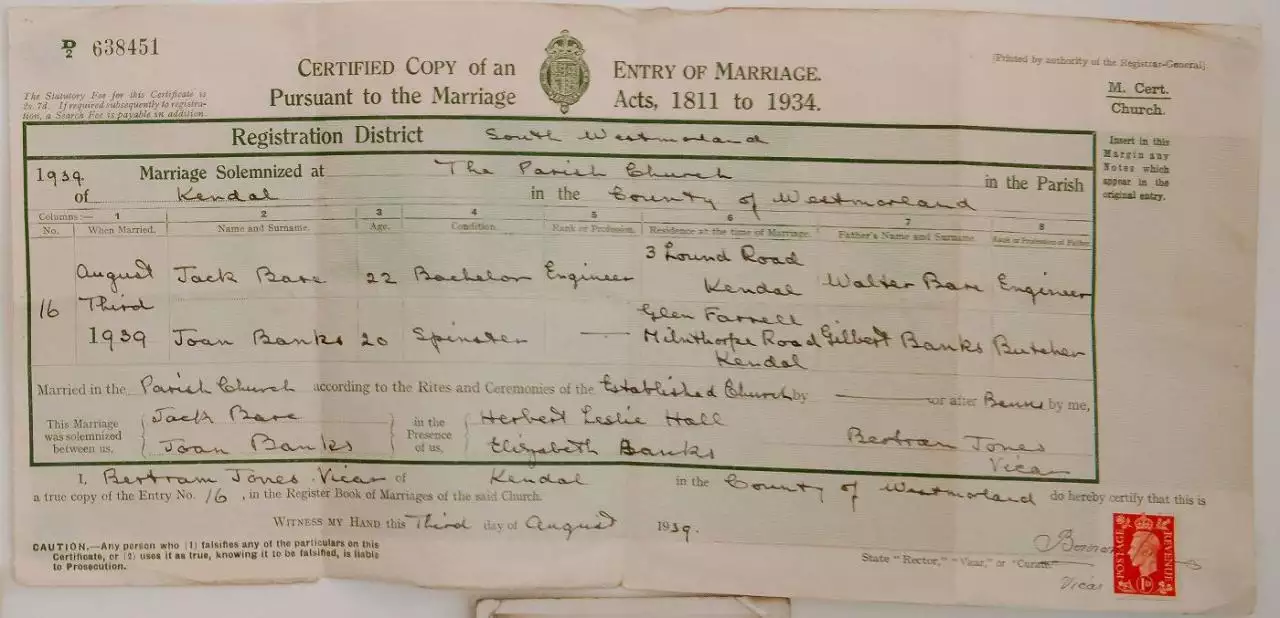 D/2 638451
CERTIFIED COPY of an ENTRY OF MARRIAGE.
Pursuant to the Marriage Acts, 1811 to 1934.
[Printed by authority of the Registrar-General]
M. Cert.
Church.
The Statutory Fee for this Certificate is
2s. 7d. If required subsequently to registra-
tion, a Search Fee is payable in addition.
Registration District South Westmorland
Insert in this
Margin any
Notes which
appear in the
original entry.
1939. Marriage Solemnized at The Parish Church in the Parish
of Kendal in the County of Westmorland
Columns:— 1 2 3 4 5 6 7 8
No. When Married. Name and Surname. Age. Condition. Rank or Profession. Residence at the time of Marriage. Father's Name and Surname. Rank or Profession of Father.
16 August Third 1939
Jack Bare 22 Bachelor Engineer 3 Lound Road Kendal Walter Bare Engineer
Joan Banks 20 Spinster — Glen Farrell Milnthorpe Road Kendal Gilbert Banks Butcher
Married in the Parish Church according to the Rites and Ceremonies of the Established Church by — or after Banns by me,
This Marriage was solemnized between us, Jack Bare Joan Banks in the Presence of us, Herbert Leslie Hall Elizabeth Banks Bertram Jones Vicar
I, Bertram Jones Vicar of Kendal in the County of Westmorland do hereby certify that this is
a true copy of the Entry No. 16, in the Register Book of Marriages of the said Church.
WITNESS MY HAND this Third day of August 1939.
CAUTION.—Any person who (1) falsifies any of the particulars on this
Certificate, or (2) uses it as true, knowing it to be falsified, is liable
to Prosecution.
State "Rector," "Vicar," or "Curate"
Vicar
POSTAGE REVENUE
1D